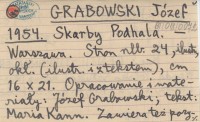 GRABOWSKI Józef
1954. Skarby Podhala.
Warszawa. Stron nlb. 24, ilustr.,
okł. (ilustr. i z tekstem), cm
16 x 21. Opracowanie i mate-
riały: Józef Grabowski; tekst:
Maria Kann. Zawiera też poz.